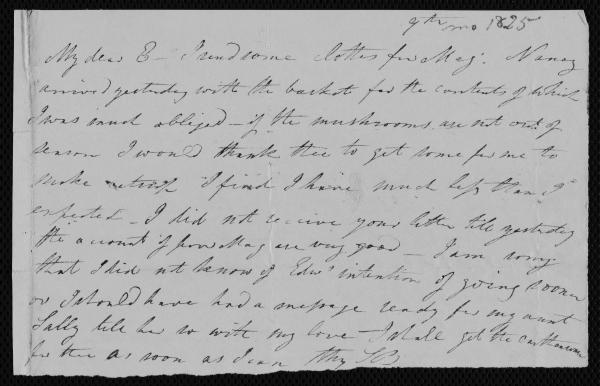 9th mo 1825
My dear E - I send some clothes for Mag. Nancy
arrived yesterday with the basket for the contents of which
I was much obliged - if the mushrooms are not out of
season I would thank thee to get some for me to
make I find I have much less than I
expected - I did not receive your letter till yesterday
the account of poor Mag are very good - I am sorry
that I did not know of Edws intention of going sooner
or I should have had a message ready for my aunt
Sally tell her so with my love - I shall get the
for thee as soon as I can Thy